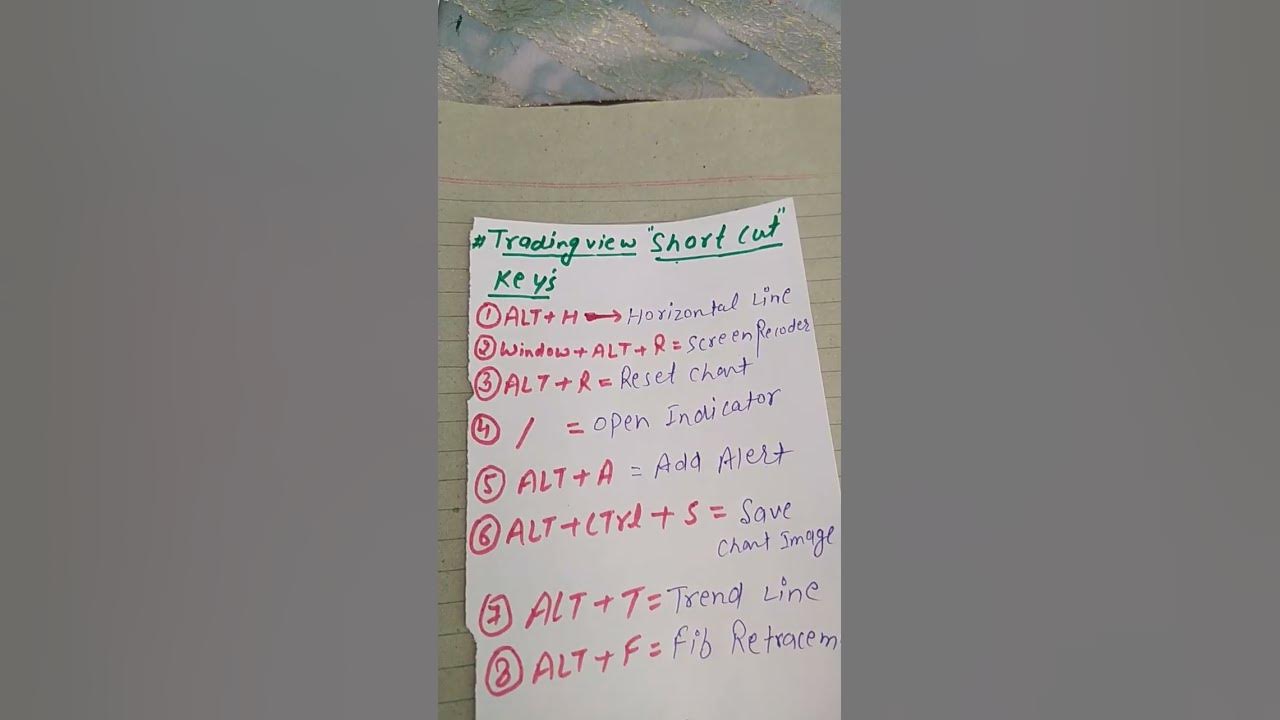 # Trading view "Short cut"
Key's
① ALT + H → Horizontal Line
② Window + ALT + R = Screen Recoder
③ ALT + R = Reset Chart
④ / = open Indicator
⑤ ALT + A = Add Alert
⑥ ALT + CTrl + S = Save
Chart Image
⑦ ALT + T = Trend Line
⑧ ALT + F = Fib Retracem